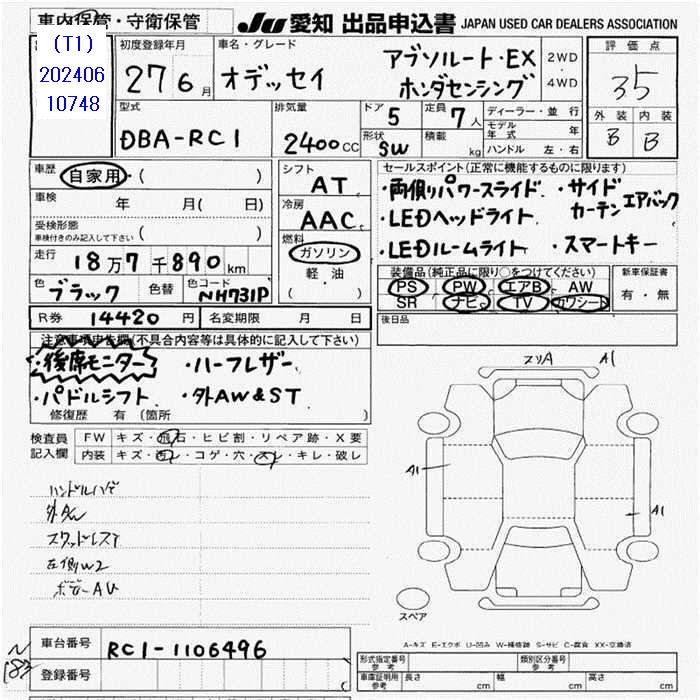 車内保管・守衛保管
JU 愛知 出品申込書 JAPAN USED CAR DEALERS ASSOCIATION
(T1)
202406
10748
初度登録年月
27 6月
車名・グレード
オデッセイ
アブソルート・EX
ホンダセンシング
2WD
4WD
評価点
35
外装 内装
B B
型式
DBA-RC1
排気量
2400CC
ドア 5
定員 7人
形状 SW
積載 kg
ディーラー・並行
モデル年式 年
ハンドル 左・右
車歴 自家用・( )
車検 年 月( 日)
受検形態
車検付きのみ記入して下さい ( )
走行 18万7千890km
色 ブラック 色替 色コード NH731P
シフト
AT
冷房
AAC
燃料
ガソリン
軽・油
( )
セールスポイント(正常に機能するものに限ります)
・両側パワースライド ・サイドカーテンエアバック
・LEDヘッドライト
・LEDルームライト ・スマートキー
装備品(純正品に限り○をつけてください)
PS PW エアB AW
SR ナビ TV カワシート
新車保証書
有・無
後日品
R券 14420円 名変期限 月 日
注意事項申告欄(不具合内容等は具体的に記入して下さい)
・後席モニター ・ハーフレザー
・パドルシフト ・外AW&ST
修復歴 有(箇所
検査員記入欄
FW キズ・飛石・ヒビ割・リペア跡・X要
内装 キズ・西レ・コゲ・穴・スレ・キレ・破レ
ハンドルハゲ
左側W2
A1
A1
A1
スペア
A-キズ E-エクボ U-凹み W-補修跡 S-サビ C-腐食 XX-交換済
車台番号 RC1-1106496
登録番号
形式指定番号 参考
類別区分番号 参考
車庫証明用 参考 長さ cm 幅 cm 高さ cm